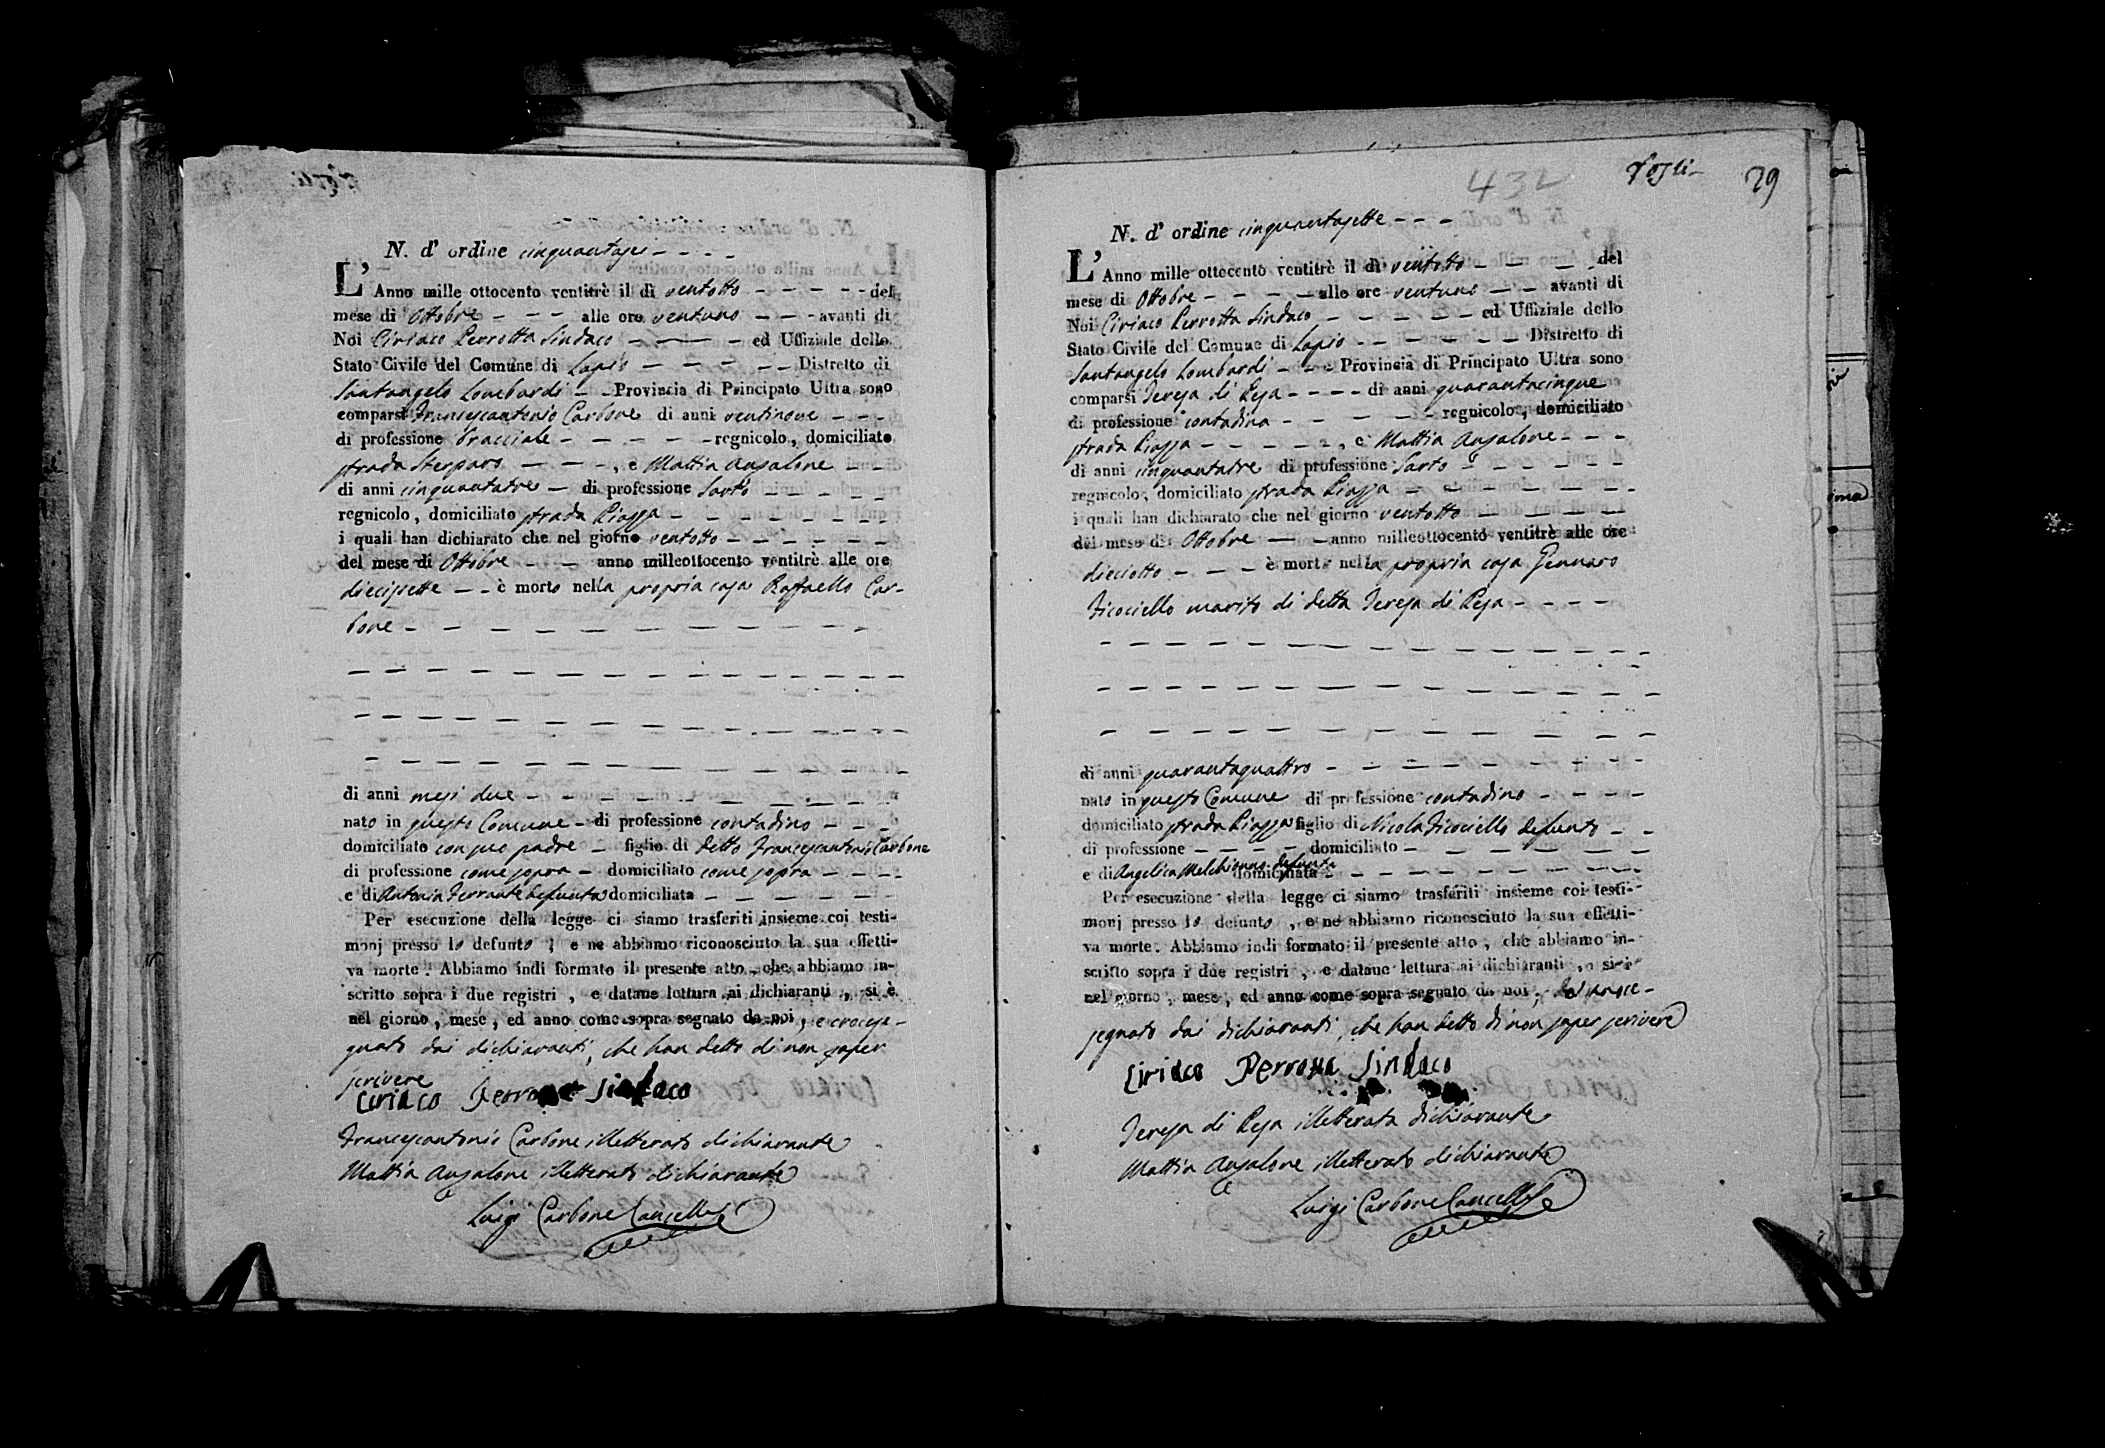 N. d' ordine cinquantasei
L' Anno mille ottocento ventitrè il dì ventotto del
mese di Ottobre alle ore ventuno avanti di
Noi Ciriaco Perrotta Sindaco ed Uffiziale dello
Stato Civile del Comune di Lapio Distretto di
Santangelo Lombardi Provincia di Principato Ultra sono
comparsi Francescantonio Carbone di anni ventinove
di professione bracciale regnicolo, domiciliato
strada Sterparo, e Mattia Ansalone
di anni cinquantatre di professione Sarto
regnicolo, domiciliato strada Piazza
i quali han dichiarato che nel giorno ventotto
del mese di Ottobre anno milleottocento ventitrè alle ore
diecisette è morto nella propria casa Raffaello Car-
bone
di anni mesi due
nato in questo Comune di professione contadino
domiciliato con suo padre figlio di detto Francescantonio Carbone
di professione come sopra domiciliato come sopra
e di Antonia Ferrante defunta domiciliata
Per esecuzione della legge ci siamo trasferiti insieme coi testi-
monj presso lo defunto, e ne abbiamo riconosciuto la sua effetti-
va morte. Abbiamo indi formato il presente atto, che abbiamo in-
scritto sopra i due registri, e datane lettura ai dichiaranti, si è
nel giorno, mese, ed anno come sopra segnato da noi, e crocese-
gnato dai dichiaranti, che han detto di non saper
scrivere
Ciriaco Perrotta Sindaco
Francescantonio Carbone illetterato dichiarante
Mattia Ansalone illetterato dichiarante
Luigi Carbone Cancell.e
432
Fogli
29
N. d' ordine cinquantasette
L' Anno mille ottocento ventitrè il dì ventotto del
mese di Ottobre alle ore ventuno avanti di
Noi Ciriaco Perrotta Sindaco ed Uffiziale dello
Stato Civile del Comune di Lapio Distretto di
Santangelo Lombardi Provincia di Principato Ultra sono
comparsi Teresa di Resa di anni quarantacinque
di professione contadina regnicolo, domiciliato
strada Piazza, e Mattia Ansalone
di anni cinquantatre di professione Sarto
regnicolo, domiciliato strada Piazza
i quali han dichiarato che nel giorno ventotto
del mese di Ottobre anno milleottocento ventitrè alle ore
dieciotto è morto nella propria casa Gennaro
Ficociello marito di detta Teresa di Resa
di anni quarantaquattro
nato in questo Comune di professione contadino
domiciliato strada Piazza figlio di Nicola Ficociello defunto
di professione domiciliato
e di Angelica Melchionno defunta domiciliata
Per esecuzione della legge ci siamo trasferiti insieme coi testi-
monj presso lo defunto, e ne abbiamo riconosciuto la sua effetti-
va morte. Abbiamo indi formato il presente atto, che abbiamo in-
scritto sopra i due registri, e datane lettura ai dichiaranti, si è
nel giorno, mese, ed anno come sopra segnato da noi, ed croce-
segnato dai dichiaranti, che han detto di non saper scrivere
Ciriaco Perrotta Sindaco
Teresa di Resa illetterata dichiarante
Mattia Ansalone illetterato dichiarante
Luigi Carbone Cancell.e